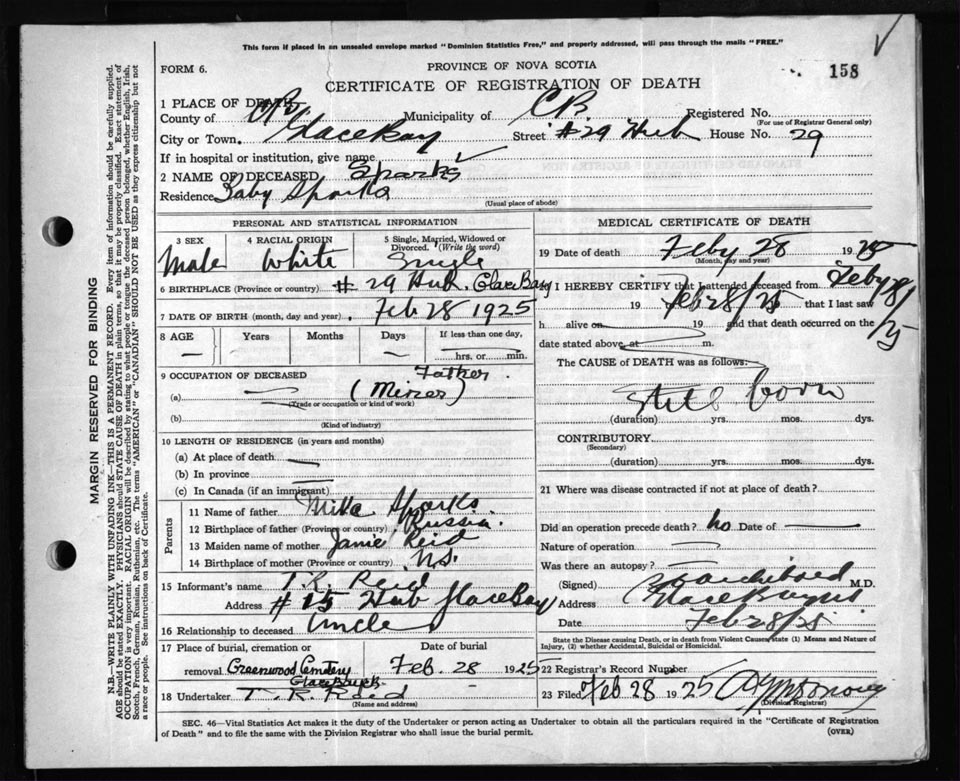 This form if placed in an unsealed envelope marked "Dominion Statistics Free," and properly addressed, will pass through the mails "FREE."
FORM 6.
PROVINCE OF NOVA SCOTIA
158
CERTIFICATE OF REGISTRATION OF DEATH
1 PLACE OF DEATH
County of CB Municipality of CB Registered No.
(For use of Registrar General only)
City or Town. Glace Bay Street #29 Hub House No. 29
If in hospital or institution, give name
2 NAME OF DECEASED Sparks
Residence Baby Sparks
(Usual place of abode)
PERSONAL AND STATISTICAL INFORMATION
3 SEX Male
4 RACIAL ORIGIN White
5 Single, Married, Widowed or Divorced. (Write the word) Single
6 BIRTHPLACE (Province or country) #29 Hub. Glace Bay
7 DATE OF BIRTH (month, day and year) Feb 28 1925
8 AGE — Years Months Days — If less than one day, hrs. or min.
9 OCCUPATION OF DECEASED Father.
(a) (Miner)
(Trade or occupation or kind of work)
(b)
(Kind of industry)
10 LENGTH OF RESIDENCE (in years and months)
(a) At place of death
(b) In province
(c) In Canada (if an immigrant)
Parents
11 Name of father Mike Sparks
12 Birthplace of father (Province or country) Russia.
13 Maiden name of mother Janie Reid
14 Birthplace of mother (Province or country) N.S.
15 Informant's name T. R. Reid
Address #25 Hub Glace Bay
16 Relationship to deceased Uncle
17 Place of burial, cremation or removal Greenwood Cemtery Glace Bay
Date of burial Feb. 28 1925
18 Undertaker T. R. Reid
(Name and address)
MEDICAL CERTIFICATE OF DEATH
19 Date of death Feby 28 1925
(Month, day and year)
I HEREBY CERTIFY that I attended deceased from Feby 28/25
19 Feb 28/25 that I last saw
h alive on 19 and that death occurred on the
date stated above, at m.
The CAUSE of DEATH was as follows:
Still born
(duration) yrs. mos. dys.
CONTRIBUTORY
(Secondary)
(duration) yrs. mos. dys.
21 Where was disease contracted if not at place of death?
Did an operation precede death? no Date of
Nature of operation
Was there an autopsy?
(Signed) M.D.
Address
Date Feb 28/25
State the Disease causing Death, or in death from Violent Causes, state (1) Means and Nature of
Injury, (2) whether Accidental, Suicidal or Homicidal.
22 Registrar's Record Number
23 Filed Feb 28 1925
(Division Registrar)
SEC. 46—Vital Statistics Act makes it the duty of the Undertaker or person acting as Undertaker to obtain all the particulars required in the "Certificate of Registration
of Death" and to file the same with the Division Registrar who shall issue the burial permit.
(OVER)
MARGIN RESERVED FOR BINDING
N.B—WRITE PLAINLY WITH UNFADING INK—THIS IS A PERMANENT RECORD. Every item of information should be carefully supplied.
AGE should be stated EXACTLY. PHYSICIANS should STATE CAUSE OF DEATH in plain terms, so that it may be properly classified. Exact statement of
OCCUPATION is very important. RACIAL ORIGIN will be described by stating to what people or tongue the deceased person belonged, whether English, Irish,
Scotch, French, German, Russian, Ruthenian, etc. The terms "AMERICAN" or "CANADIAN" SHOULD NOT BE USED as they express citizenship but not
a race or people. See instructions on back of Certificate.